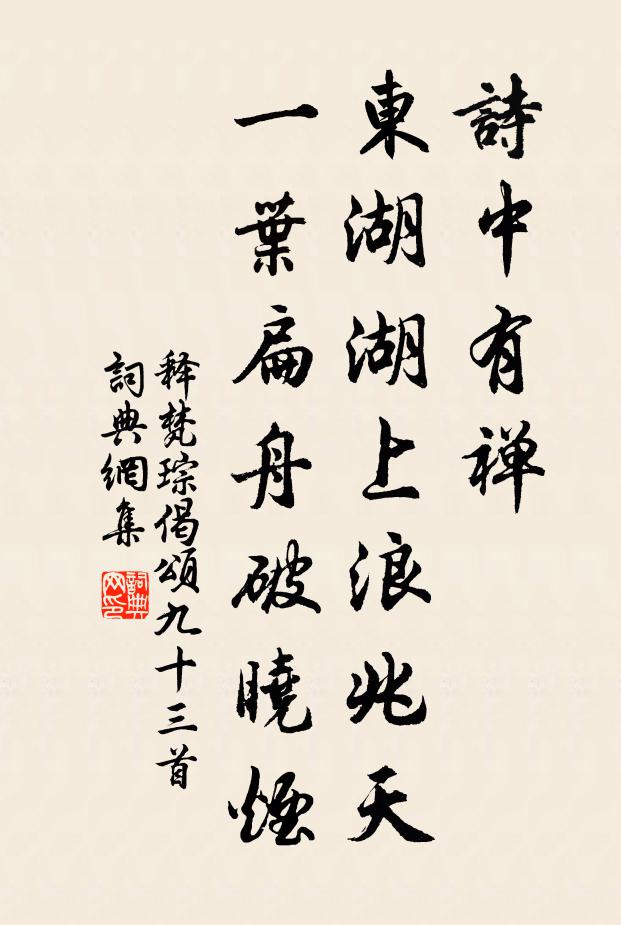 詩中有禅
東湖湖上浪兆天
一葉扁舟破曉煙
释梵琮偈頌九十三首
詞典網集
詞典
网印